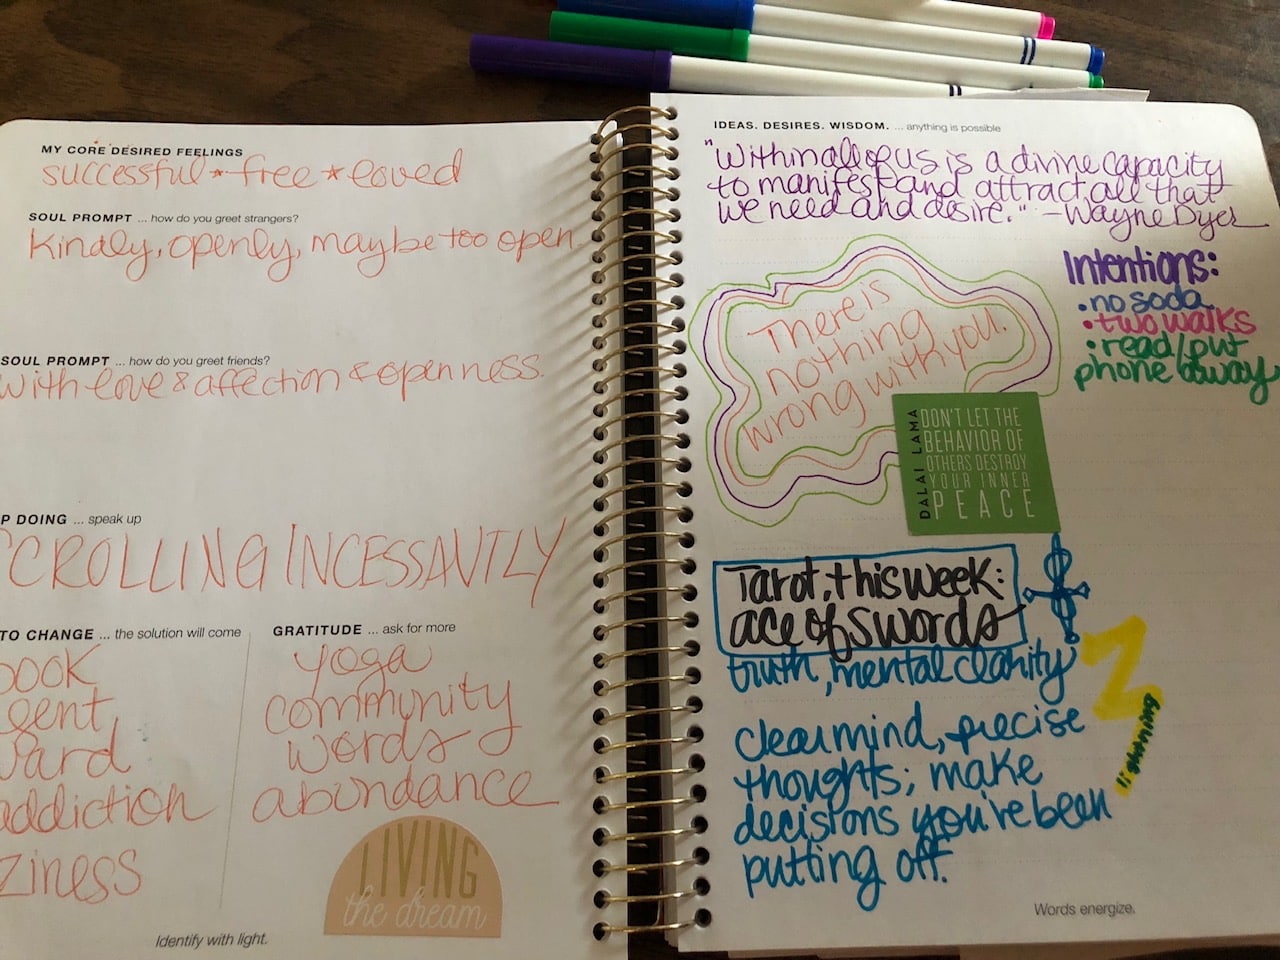 MY CORE DESIRED FEELINGS
successful * free * loved
SOUL PROMPT ... how do you greet strangers?
Kindly, openly, maybe too open.
SOUL PROMPT ... how do you greet friends?
with love & affection & openness.
P DOING ... speak up
SCROLLING INCESSANTLY
TO CHANGE ... the solution will come
book
gent
yard
addiction
ziness
GRATITUDE ... ask for more
yoga
community
words
abundance
LIVING
the dream
Identify with light.
IDEAS. DESIRES. WISDOM. ... anything is possible
"Within all of us is a divine capacity
to manifest and attract all that
we need and desire." -Wayne Dyer
Intentions:
• no soda
• two walks
• read/put
phone away
There is
nothing
wrong with you.
DALAI LAMA
DON'T LET THE
BEHAVIOR OF
OTHERS DESTROY
YOUR INNER
PEACE
Tarot, this week:
ace of swords
truth, mental clarity
clear mind, precise
thoughts; make
decisions you've been
putting off.
lightning
Words energize.